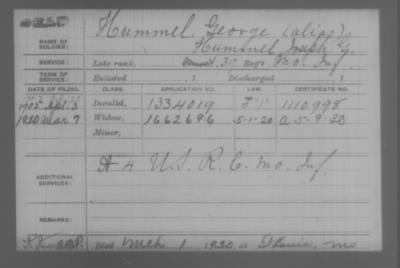 DEAD
Hummel, George (alias)
NAME OF SOLDIER:
Hummel, Joseph G.
SERVICE: Late rank, 30 Regt. Mo. Inf.
TERM OF SERVICE: Enlisted , 1 Discharged , 1
DATE OF FILING. CLASS. APPLICATION NO. LAW. CERTIFICATE NO.
1905 Apl. 3 Invalid, 1334019 1110998
1920 Mar. 9 Widow, 1662696 5-1-20 A 5-9-20
Minor,
ADDITIONAL SERVICES: A 4 U.S.R.C. Mo. Inf.
REMARKS:
Died Mch 1, 1920, at St Louis, Mo